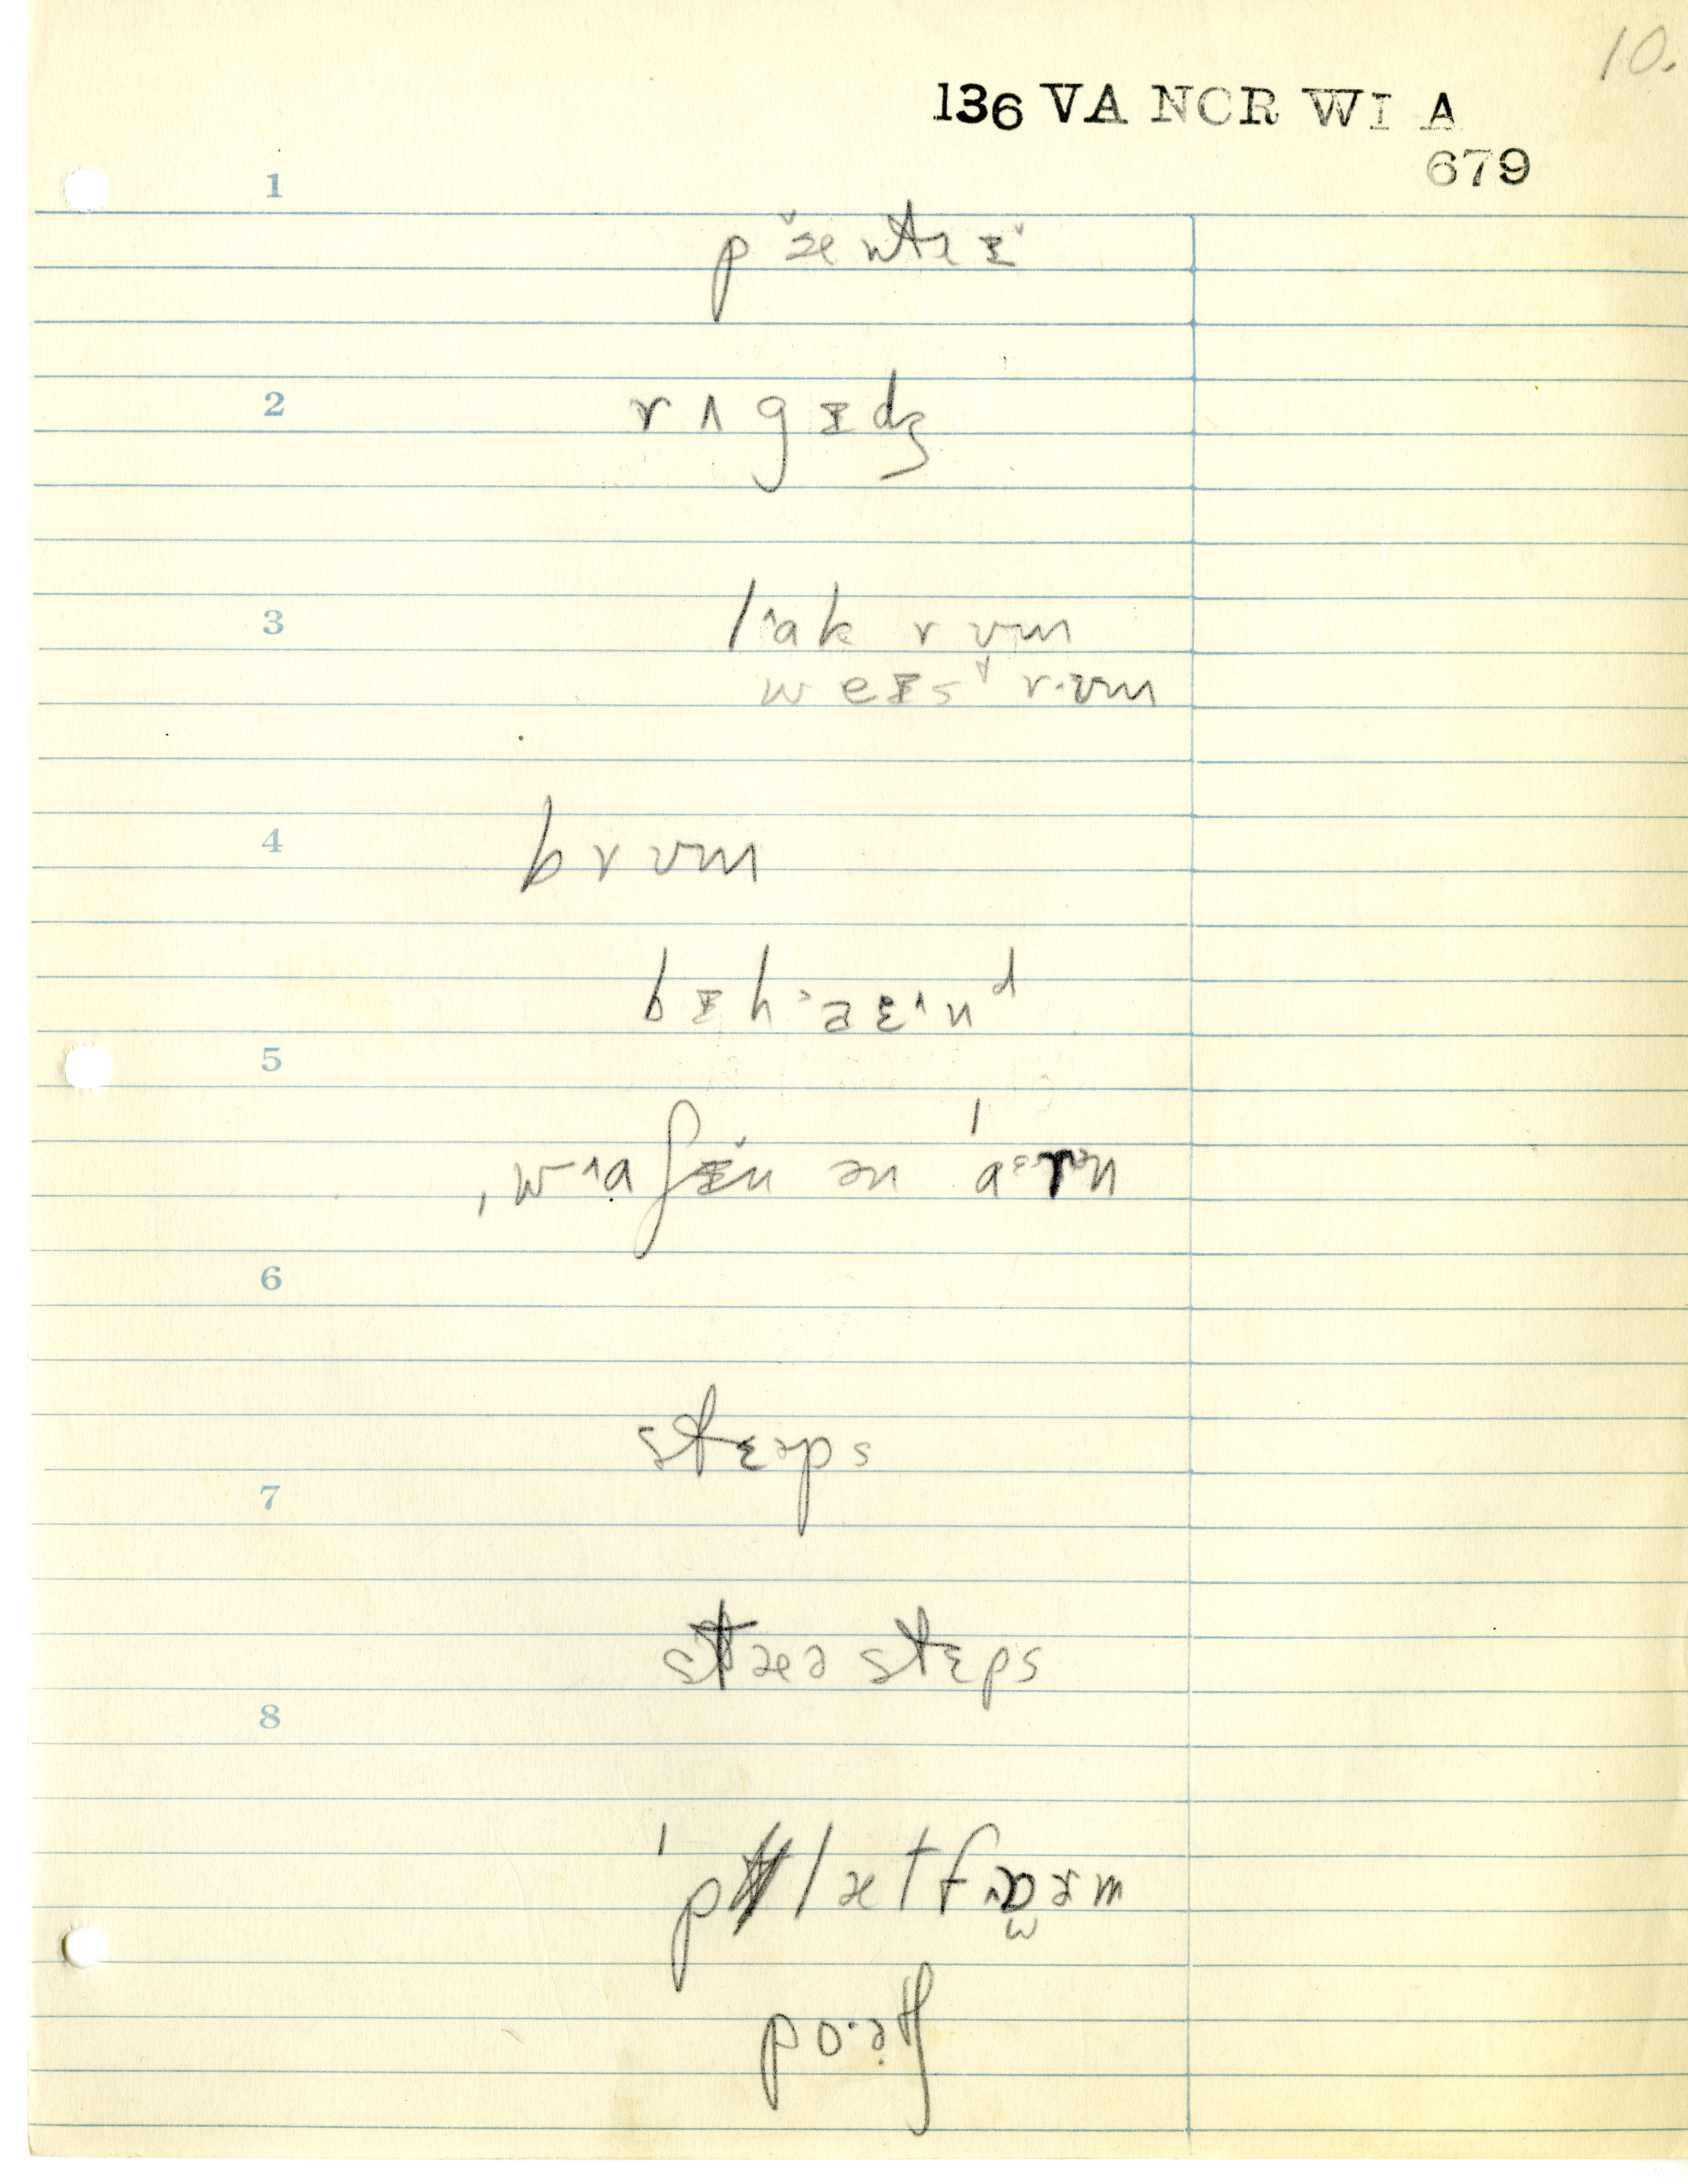 10.
136 VA NCR WI A
679
1
p æ̆ntrɪ̆
2
rʌgɪdʒ
3
l^ak rʊm
weɪsᵗ rʊm
4
brʊm
bɪh˃aɛ^nᵈ
5
ˌw^aʃɪ̆n ən ˈaᵋrn
6
7
stɛəps
stæə stɛps
8
ˈplætfɒəm
po·ətʃ